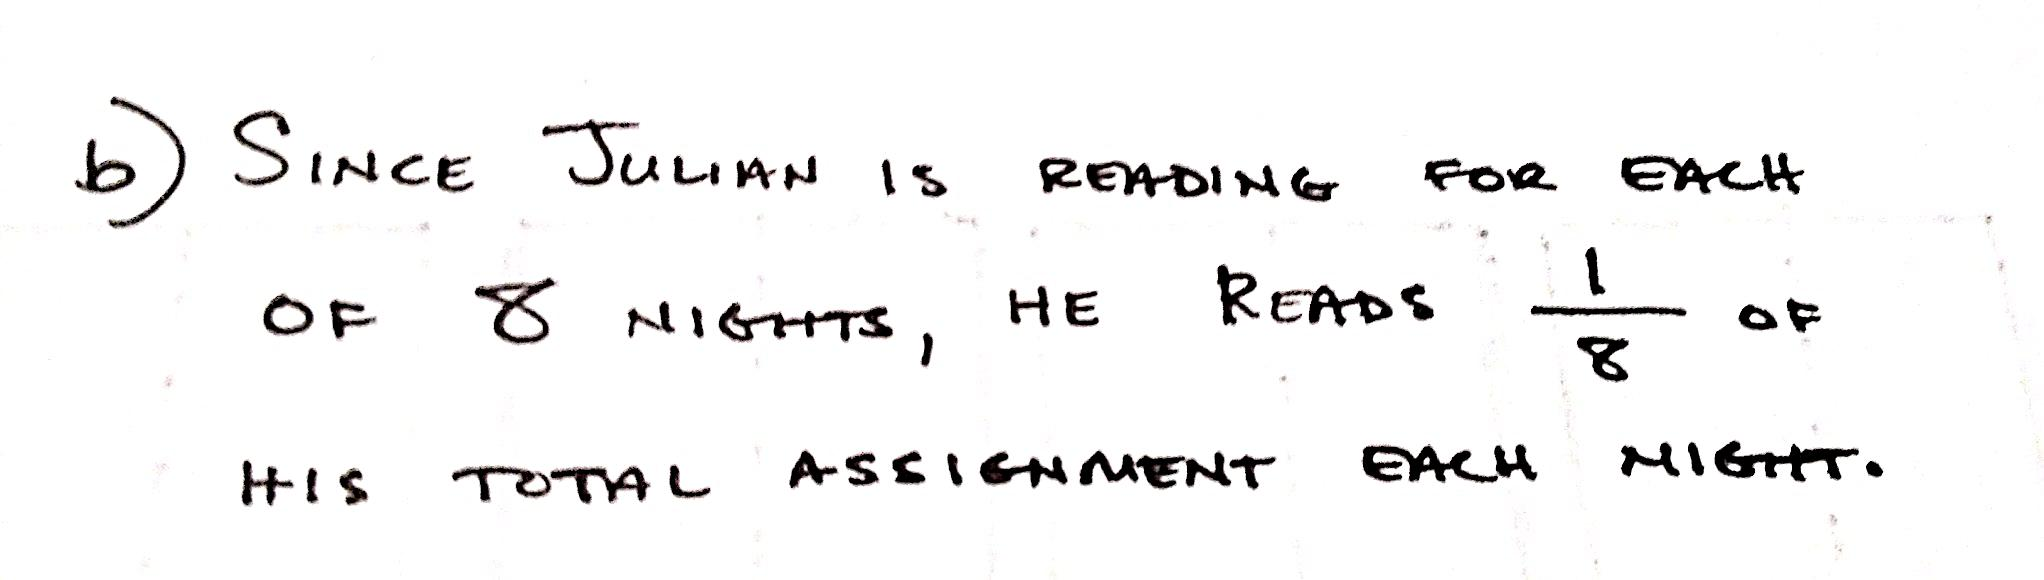 b) SINCE JULIAN IS READING FOR EACH
OF 8 NIGHTS, HE READS 1/8 OF
HIS TOTAL ASSIGNMENT EACH NIGHT.